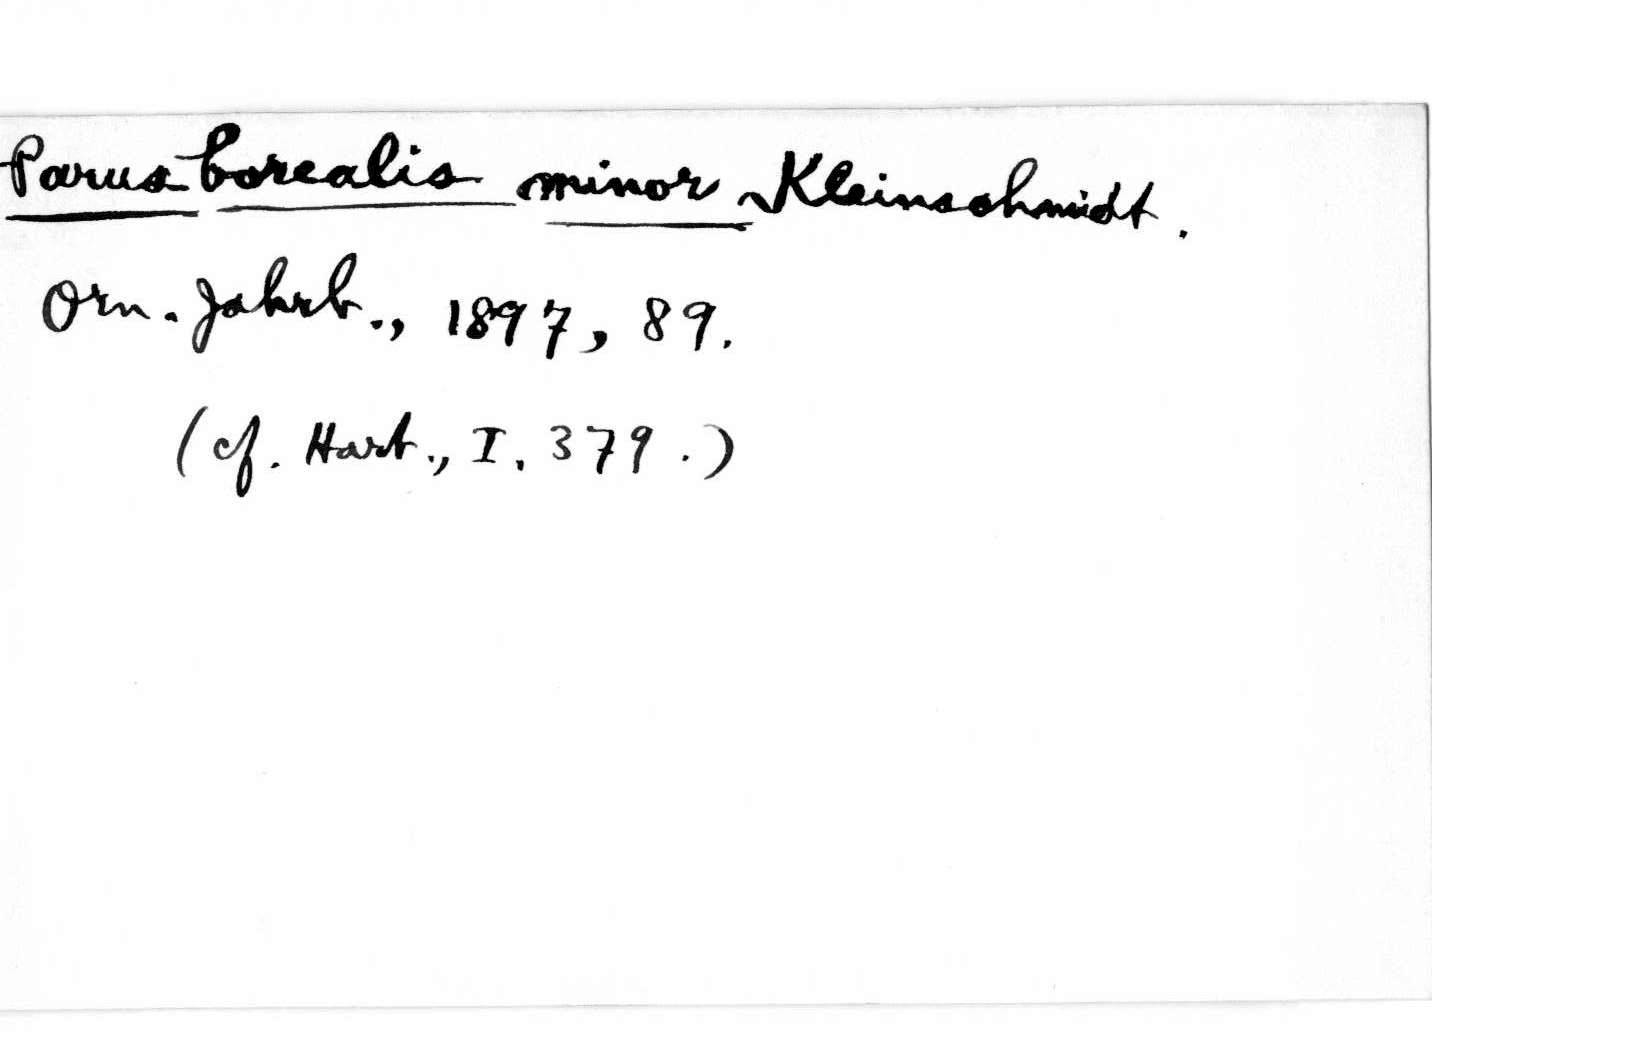 Parus borealis minor Kleinschmidt.
Orn. Jahrb., 1897, 89.
(cf. Hart., I. 379.)